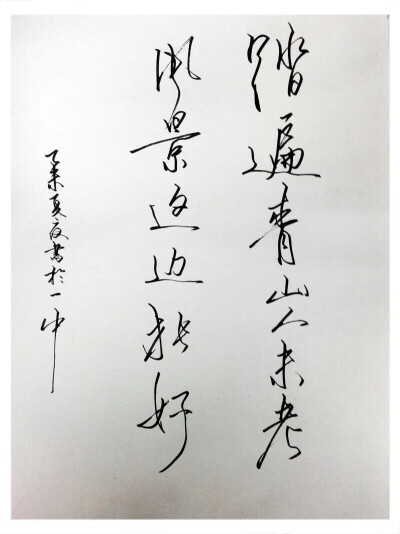 踏遍青山人未老
風景这边独好
乙未夏夜書於一中